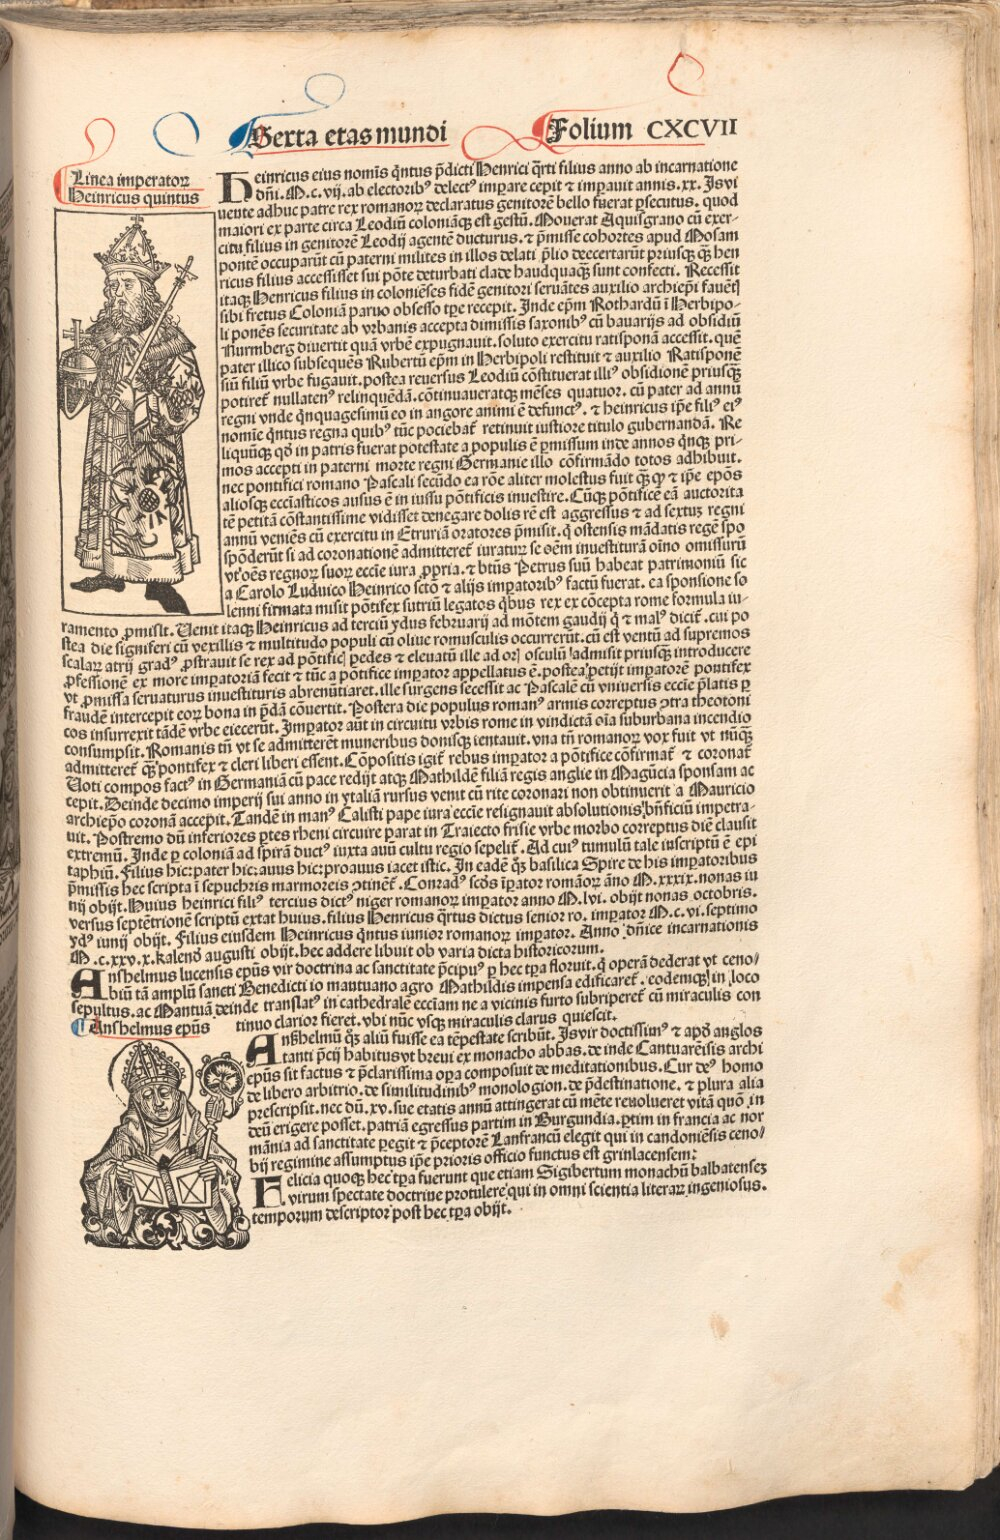 Sexta etas mundi
Folium CXCVII
Linea imperatoꝝ
Heinricus quintus
Heinricus eius nomĩs q̃ntus p̃dicti Henrici q̃rti filius anno ab incarnatione
dñi. M.c.vij. ab electoribꝰ delectꝰ imꝑare cepit ⁊ imꝑauit annis. xx. Is vi
uente adhuc patre rex romanoꝝ declaratus genitorẽ bello fuerat ꝑsecutus. quod
maiori ex parte circa Leodiũ coloniãqꝫ est gestũ. Mouerat Aquisgrano cũ exer-
citu filius in genitorẽ Leodij agentẽ ducturus. ⁊ p̃misse cohortes apud Mosam
pontẽ occuparũt cũ paterni milites in illos delati p̃lio deccertarũt priusqꝫ q̃ꝫ hen
ricus filius accessisset sui põte deturbati clade haudquaqꝫ sunt confecti. Recessit
itaqꝫ Henricus filius in coloniẽses fidẽ genitori seruãtes auxilio archiep̃i fauẽt
sibi fretus Coloniã paruo obsesso tꝑe recepit. Inde ep̃m Rothardũ ĩ Herbipo-
li ponẽs securitate ab vrbanis accepta dimissis saxonibꝰ cũ bauarijs ad obsidiũ
Nurmberg diuertit quã vrbẽ expugnauit. soluto exercitu ratisponã accessit. quẽ
pater illico subsequẽs Rubertũ ep̃m in Herbipoli restituit ⁊ auxilio Ratisponẽ
siũ filiũ vrbe fugauit. postea reuersus Leodiũ cõstituerat illiꝰ obsidionẽ priusqꝫ
potiret᷑ nullatenꝰ relinquẽdã. cõtinuaueratqꝫ mẽses quatuor. cũ pater ad annũ
regni vnde q̃nquagesimũ eo in angore animi ẽ defunctꝰ. ⁊ heinricus ip̃e filiꝰ eiꝰ
nomĩe q̃ntus regna quibꝰ tũc pociebat᷑ retinuit iustiore titulo gubernandã. Re
liquũqꝫ qđ in patris fuerat potestate a populis ẽ ꝑmissum inde annos q̃nqꝫ pri-
mos accepti in paterni morte regni Germanie illo cõfirmãdo totos adhibuit.
nec pontifici romano Pascali secũdo ea rõe aliter molestus fuit q̃ꝫ ꝙ ⁊ ip̃e ep̃os
aliosqꝫ ecc̃iasticos ausus ẽ in iussu põtificis inuestire. Cũqꝫ põtificẽ eã auctorita
tẽ petitã cõstantissime vidisset denegare dolis rẽ est aggressus ⁊ ad sextuꝫ regni
annũ veniẽs cũ exercitu in Etruriã oratores p̃misit. q̃ ostensis mãdatis regẽ spo
spõderũt si ad coronationẽ admitteret᷑ iuratur̃ se oẽm inuestiturã oĩno omissurũ
vt oẽs regnoꝝ suoꝝ ecc̃ie iura ꝓpria. ⁊ btũs Petrus suũ habeat patrimoniũ sic
a Carolo Luduico Heinrico sctõ ⁊ alijs imꝑatoribꝰ factũ fuerat. ea sponsione so
lenni firmata misit põtifex sutriũ legatos q̃bus rex ex cõcepta rome formula iu-
ramento ꝓmisit. Uenit itaqꝫ Heinricus ad terciũ ydus februarij ad mõtem gaudij q̃ ⁊ malꝰ dicit᷑. cui po
stea die signiferi cũ vexillis ⁊ multitudo populi cũ oliue romusculis occurrerũt. cũ est ventũ ad supremos
scalaꝝ atrij gradꝰ ꝓstrauit se rex ad põtific pedes ⁊ eleuatũ ille ad or osculũ admisit priusqꝫ introducere
ꝓfessionẽ ex more imꝑatoriã fecit ⁊ tũc a põtifice imꝑator appellatus ẽ. postea petijt imꝑatorẽ pontifex
vt ꝓmissa seruaturus inuestituris abrenũtiaret. ille surgens secessit ac Pascalẽ cũ vniuersis eccie p̃latis ꝑ
fraudẽ intercepit eoꝝ bona in p̃dã cõuertit. Postera die populus romanꝰ armis correptus ꝯtra theotoni
cos insurrexit tãdẽ vrbe eiecerũt. Imꝑator aũt in circuitu vrbis rome in vindictã oĩa suburbana incendio
consumpsit. Romanis tñ vt se admitterẽt muneribus donisqꝫ ientauit. vna tñ romanoꝝ vox fuit vt nũqꝫ
admitteret᷑ q̃ꝫ pontifex ⁊ cleri liberi essent. Cõpositis igit᷑ rebus imꝑator a põtifice cõfirmat᷑ ⁊ coronat᷑
Uoti compos factꝰ in Germaniã cũ pace redijt atqꝫ Mathildẽ filiã regis anglie in Magũcia sponsam ac
cepit. Deinde decimo imperij sui anno in ytaliã rursus venit cũ rite coronari non obtinuerit a Mauricio
archiep̃o coronã accepit. Tandẽ in manꝰ Calisti pape iura ecc̃ie resignauit absolutionis bñficiũ impetra-
uit. Postremo dũ inferiores ꝑtes rheni circuire parat in Traiecto frisie vrbe morbo correptus diẽ clausit
extremũ. Inde ꝑ coloniã ad spirã ductꝰ iuxta auũ cultu regio sepelit᷑. Ad cuiꝰ tumulũ tale inscriptũ ẽ epi
taphiũ. Filius hic: pater hic: auus hic: proauus iacet istic. In eadẽ q̃ꝫ basilica Spire de his imꝑatoribus
p̃missis hec scripta ĩ sepuchris marmoreis ꝯtinẽt᷑. Conradꝰ scđs ĩꝑator romãoꝝ ãno M.xxxix. nonas iu
nij obijt. Huius heinrici filiꝰ tercius dictꝰ niger romanoꝝ imꝑator anno M.lvi. obijt nonas octobris.
versus septẽtrionẽ scriptũ extat huius. filius Henricus q̃rtus dictus senior ro. imꝑator M.c.vi. septimo
ydꝰ iunij obijt. Filius eiusdem Heinricus q̃ntus iunior romanoꝝ imꝑator. Anno dñice incarnationis
M.c.xxv.x.kalenđ augusti obijt. hec addere libuit ob varia dicta historicorum.
Anshelmus lucensis ep̃us vir doctrina ac sanctitate p̃cipuꝰ ꝑ hec tꝑa floruit. q̃ operã dederat vt ceno/
biũ tã amplũ sancti Benedicti io mantuano agro Mathildis impensa edificaret᷑. eodemqꝫ in loco
sepultus. ac Mantuã deinde translatꝰ in cathedralẽ ecc̃am ne a vicinis furto subriperet᷑ cũ miraculis con
tinuo clarior fieret. vbi nũc vsqꝫ miraculis clarus quiescit.
Anshelmus ep̃us
Anshelmũ q̃ꝫ aliũ fuisse ea tẽpestate scribũt. Is vir doctissimꝰ ⁊ apđ anglos
tanti p̃cij habitus vt breui ex monacho abbas. de inde Cantuarẽisis archi
ep̃us sit factus ⁊ p̃clarissima oꝑa composuit de meditationibus. Cur deꝰ homo
de libero arbitrio. de similitudinibꝰ monologion. de p̃destinatione. ⁊ plura alia
prescripsit. nec dũ. xv. sue etatis annũ attingerat cũ mẽte reuolueret vitã quõ in
deũ erigere posset. patriã egressus partim in Burgundia. ꝑtim in francia ac nor
mãnia ad sanctitate ꝑegit ⁊ p̃ceptorẽ Lanfrancũ elegit qui in candoniẽsis ceno/
bij regimine assumptus ip̃e prioris officio functus est grinlacensem:
Felicia quoqꝫ hec tꝑa fuerunt que etiam Sigibertum monachũ balbatenseꝫ
virum spectate doctrine protulere qui in omni scientia literaꝝ ingeniosus.
temporum descriptor post hec tꝑa obijt.